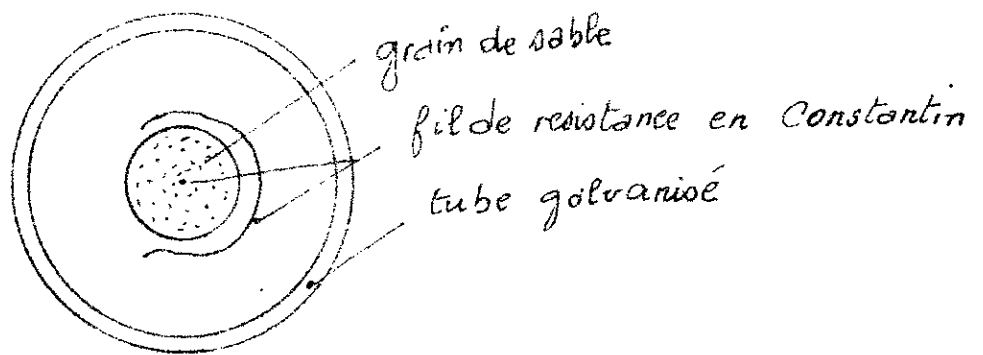 grain de sable
fil de resistance en Constantin
tube galvanisé